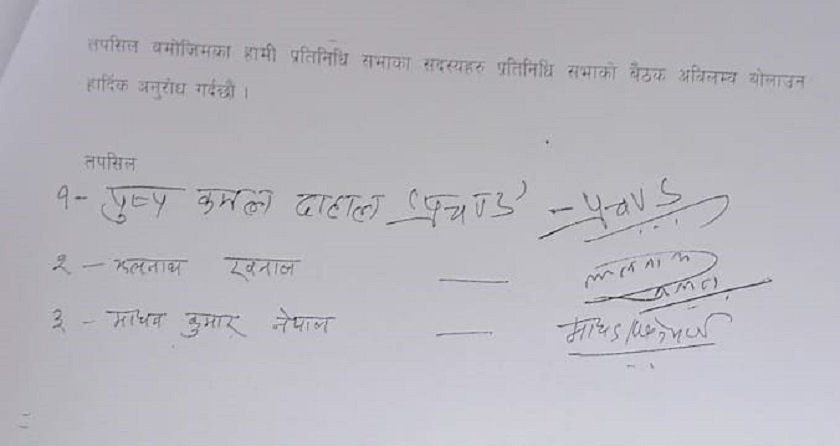 तपसिल बमोजिमका हामी प्रतिनिधि सभाका सदस्यहरु प्रतिनिधि सभाको बैठक अविलम्ब बोलाउन
हार्दिक अनुरोध गर्दछौं ।
तपसिल
१- पुष्प कमल दाहाल 'प्रचण्ड' - प्रचण्ड
२ - झलनाथ खनाल —
३ - माधव कुमार नेपाल —